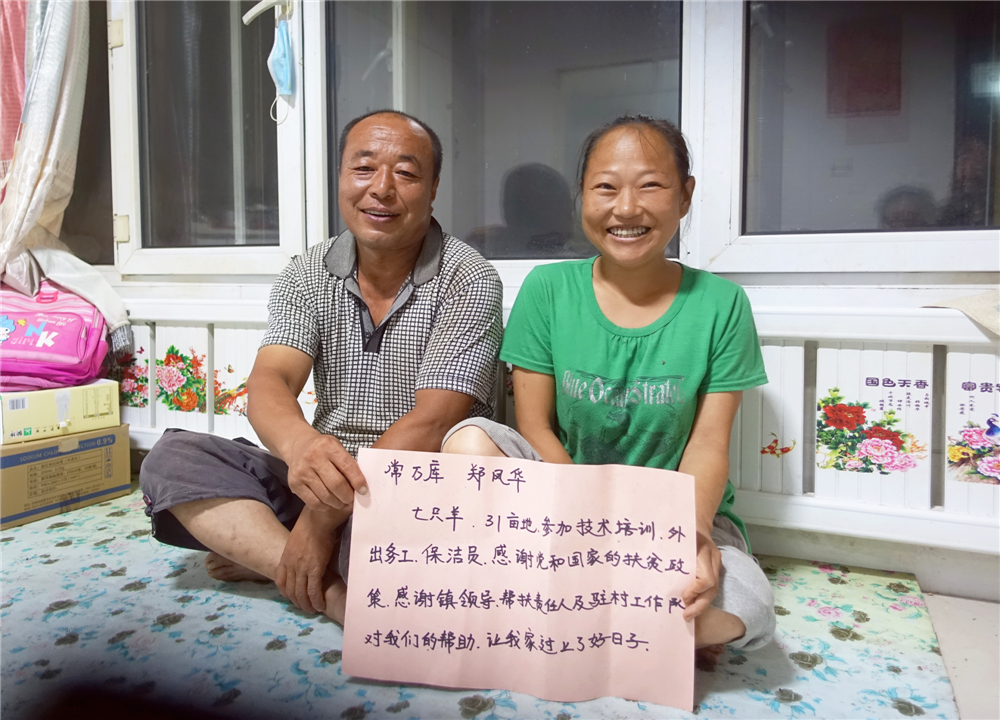 常万库 郑凤华
七只羊、31亩地、参加技术培训、外
出务工、保洁员、感谢党和国家的扶贫政
策、感谢镇领导、帮扶责任人及驻村工作队
对我们的帮助、让我家过上了好日子.
国色天香
NK
girl